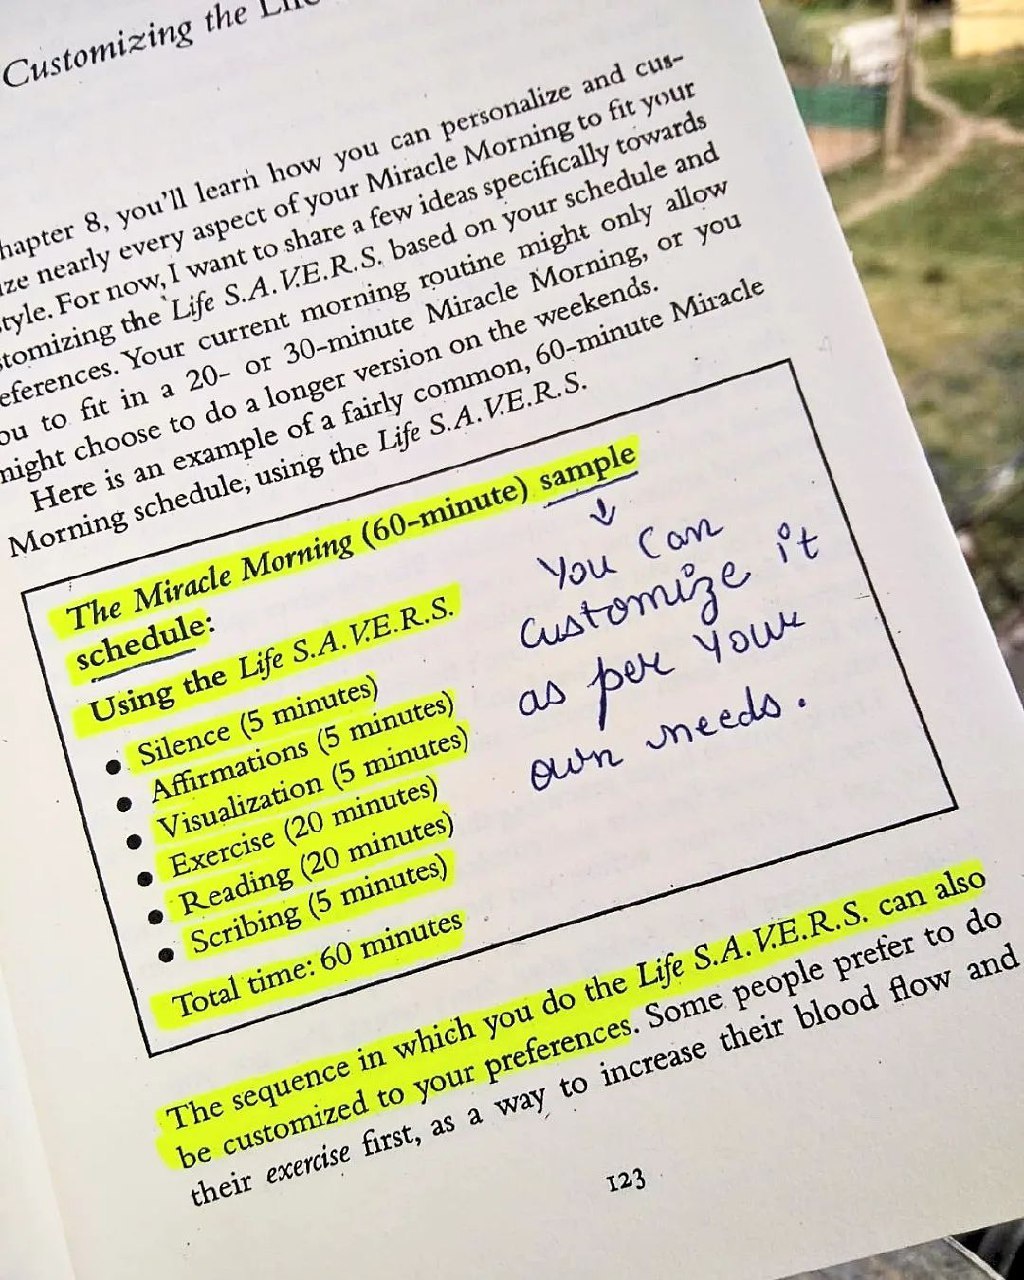 Customizing the
hapter 8, you'll learn how you can personalize and cus-
ize nearly every aspect of your Miracle Morning to fit your
tyle. For now, I want to share a few ideas specifically towards
tomizing the Life S.A.V.E.R.S. based on your schedule and
eferences. Your current morning routine might only allow
ou to fit in a 20- or 30-minute Miracle Morning, or you
night choose to do a longer version on the weekends.
Here is an example of a fairly common, 60-minute Miracle
Morning schedule, using the Life S.A.V.E.R.S.
The Miracle Morning (60-minute) sample
schedule:
Using the Life S.A.V.E.R.S.
• Silence (5 minutes)
• Affirmations (5 minutes)
• Visualization (5 minutes)
• Exercise (20 minutes)
• Reading (20 minutes)
• Scribing (5 minutes)
Total time: 60 minutes
↓
You Can
customize it
as per Your
own needs.
The sequence in which you do the Life S.A.V.E.R.S. can also
be customized to your preferences. Some people prefer to do
their exercise first, as a way to increase their blood flow and
123